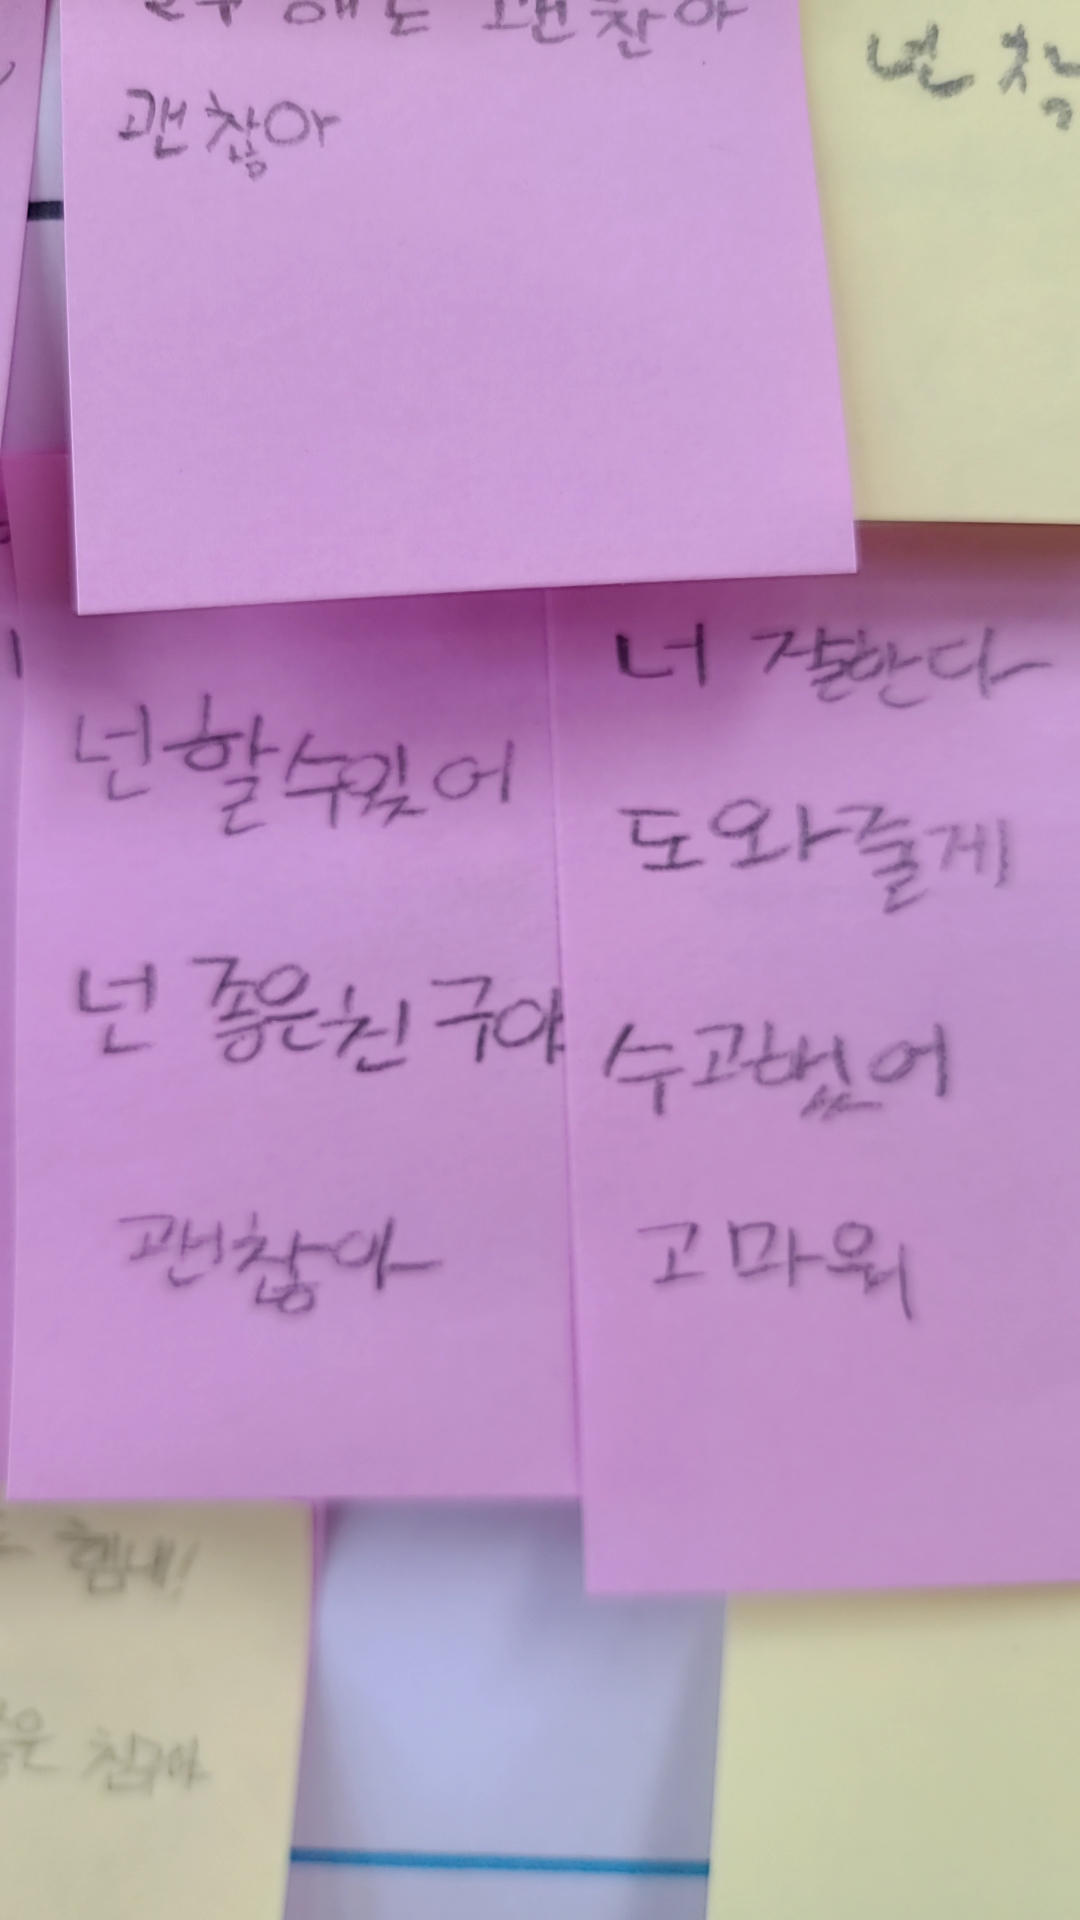 괜찮아
넌 할수있어
넌 좋은친구야
괜찮아
너 잘한다
도와줄게
수고했어
고마워
힘내!
친구야